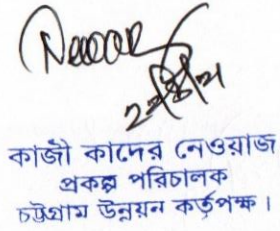 কাজী কাদের নেওয়াজ
প্রকল্প পরিচালক
চট্টগ্রাম উন্নয়ন কর্তৃপক্ষ।